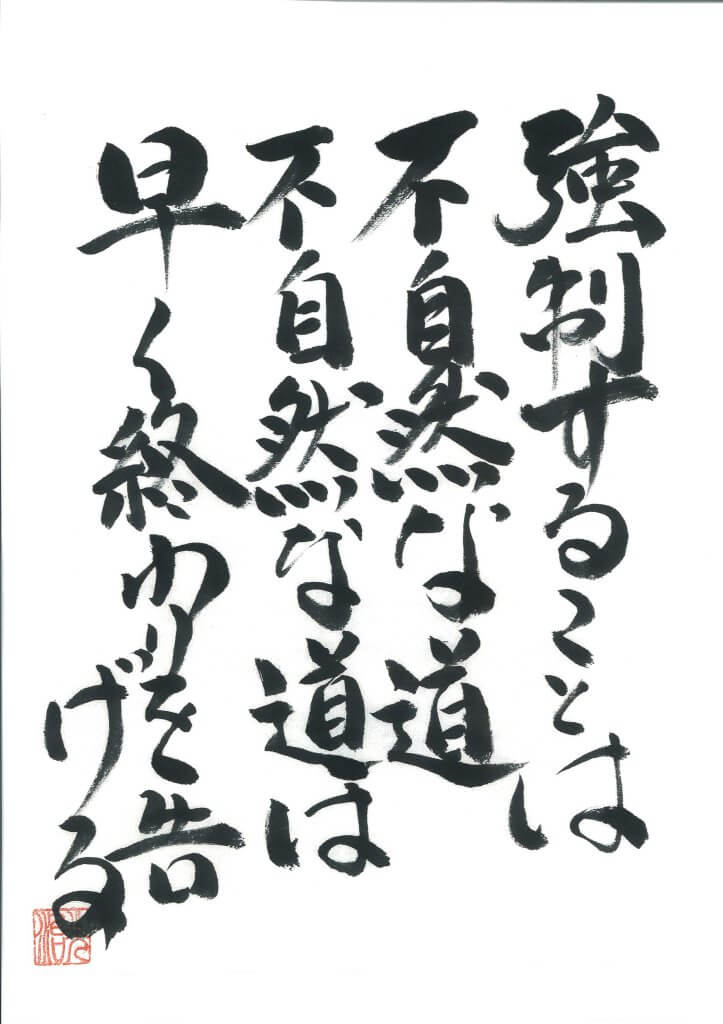 強制することは
不自然な道
不自然な道は
早く終わりを告
げる